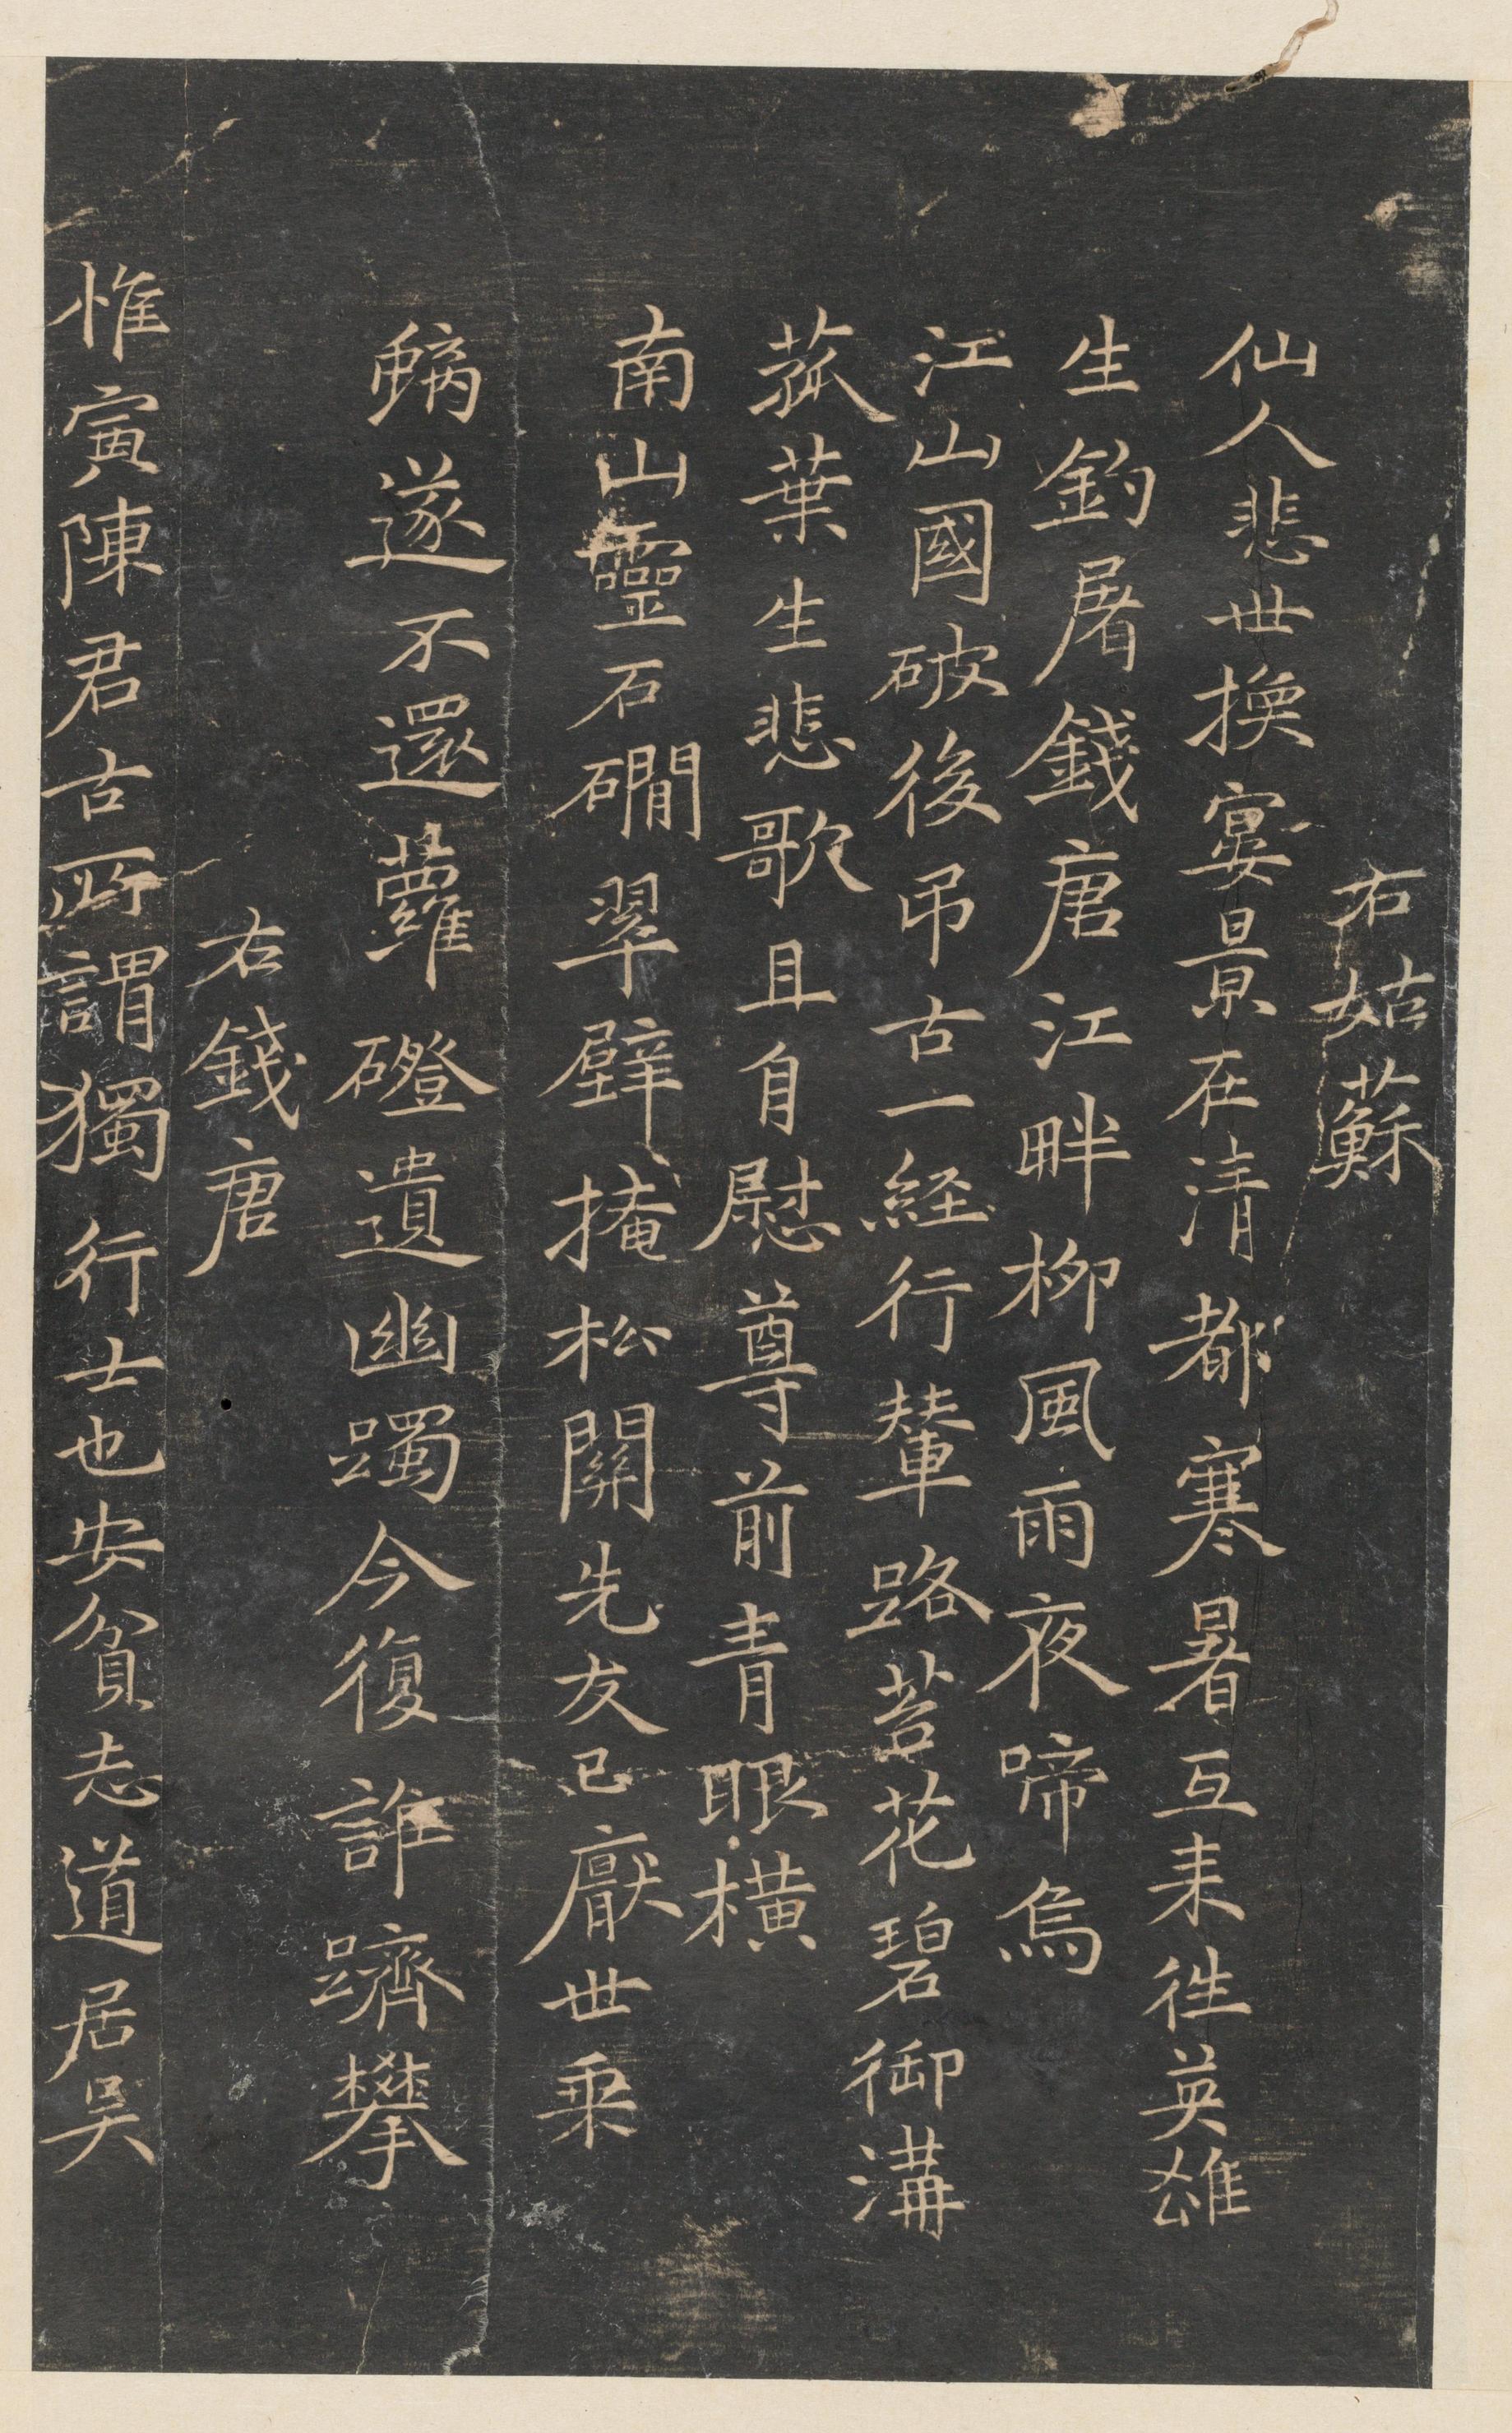 右姑蘇
仙人悲世換宴景在清都寒暑互来徃英雄
生釣屠錢唐江畔柳風雨夜啼烏
江山國破後吊古一経行輦路苔花碧御溝
菰葉生悲歌且自慰尊前青眼橫
南山靈石磵翠壁掩松關先友已厭世乘
螭遂不還蘿磴遺幽躅今復誰躋攀
右錢唐
惟寅陳君古所謂獨行士也安貧志道居吴